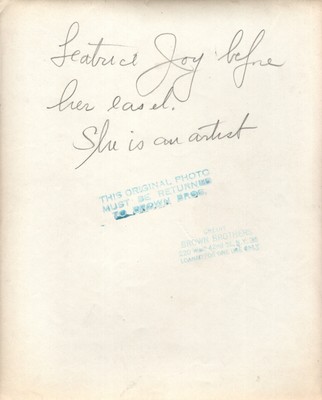 Leatrice Joy before
her easel.
She is an artist
THIS ORIGINAL PHOTO
MUST BE RETURNED
TO BROWN BROS.
BROWN BROTHERS